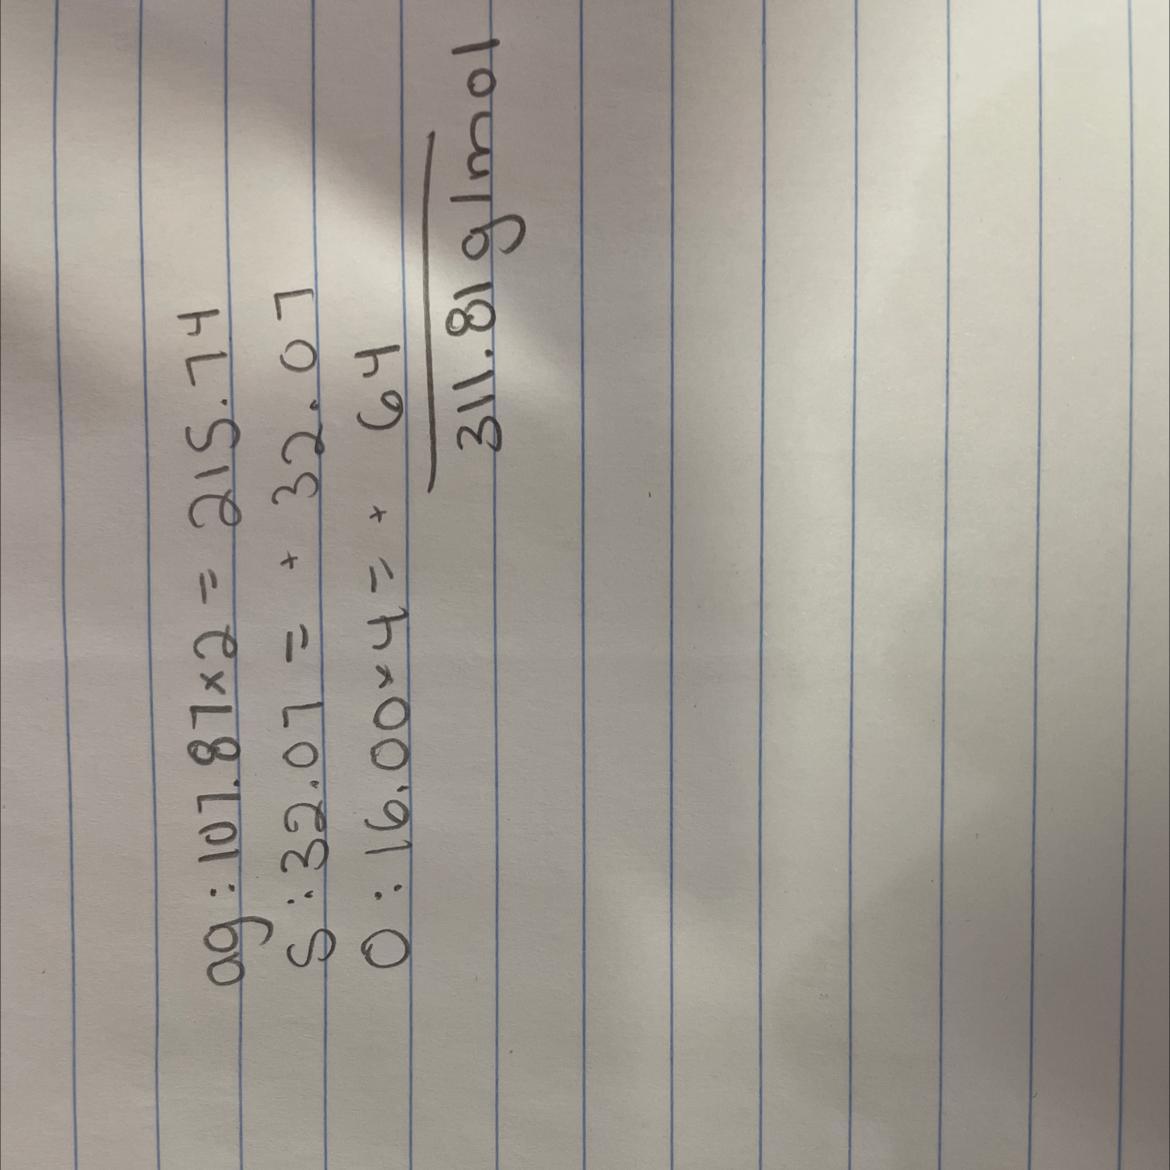 ag : 107.87 x 2 = 215.74
S : 32.07 = + 32.07
O : 16.00 x 4 = + 64
311.81 g/mol